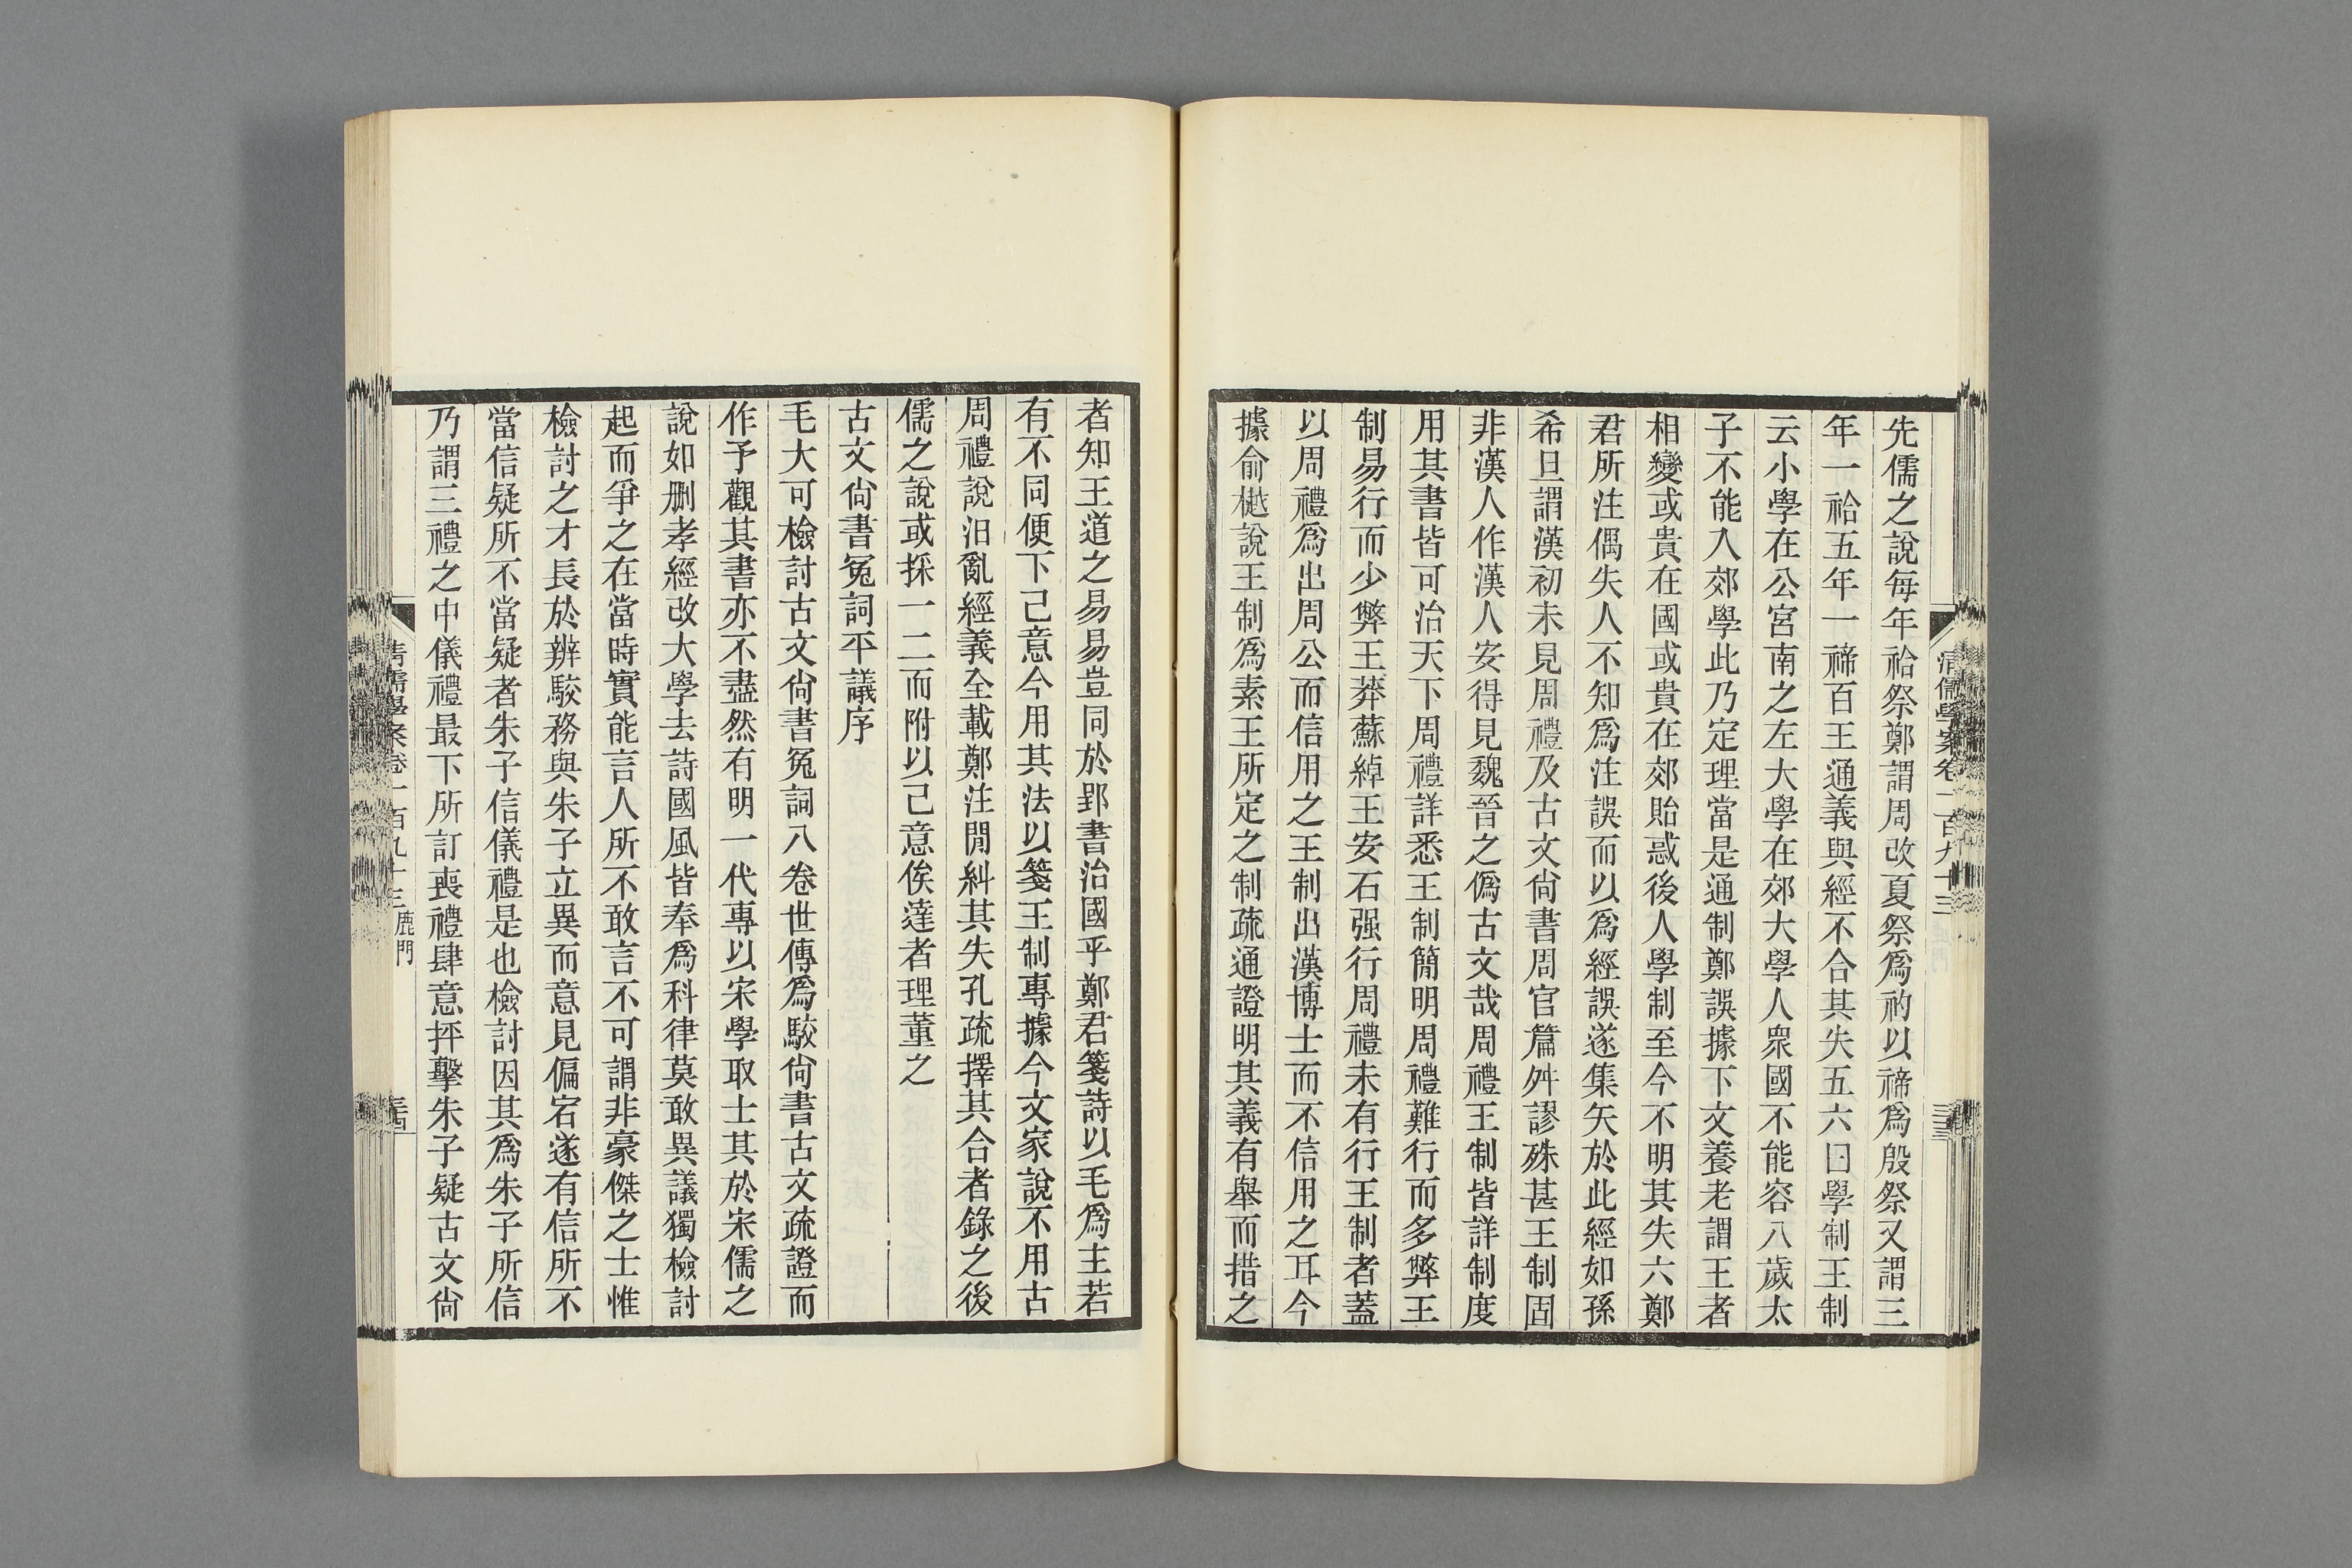 先儒之說每年祫祭鄭謂周改夏祭爲礿以禘爲殷祭又謂三
年一祫五年一禘百王通義與經不合其失五六曰學制王制
云小學在公宮南之左大學在郊大學人衆國不能容八歲太
子不能入郊學此乃定理當是通制鄭誤據下文養老謂王者
相變或貴在國或貴在郊貽惑後人學制至今不明其失六鄭
君所注偶失人不知爲注誤而以爲經誤遂集矢於此經如孫
希旦謂漢初未見周禮及古文尙書周官篇舛謬殊甚王制固
非漢人作漢人安得見魏晉之僞古文哉周禮王制皆詳制度
用其書皆可治天下周禮詳悉王制簡明周禮難行而多弊王
制易行而少弊王莽蘇綽王安石强行周禮未有行王制者蓋
以周禮爲出周公而信用之王制出漢博士而不信用之耳今
據俞樾說王制爲素王所定之制疏通證明其義有舉而措之
清儒學案卷一百九十三
三三
者知王道之易易豈同於郢書治國乎鄭君箋詩以毛爲主若
有不同便下己意今用其法以箋王制專據今文家說不用古
周禮說汨亂經義全載鄭注閒糾其失孔疏擇其合者錄之後
儒之說或採一二而附以己意俟達者理董之
古文尙書冤詞平議序
毛大可檢討古文尙書冤詞八卷世傳爲駮尙書古文疏證而
作予觀其書亦不盡然有明一代專以宋學取士其於宋儒之
說如刪孝經改大學去詩國風皆奉爲科律莫敢異議獨檢討
起而爭之在當時實能言人所不敢言不可謂非豪傑之士惟
檢討之才長於辨駮務與朱子立異而意見偏宕遂有信所不
當信疑所不當疑者朱子信儀禮是也檢討因其爲朱子所信
乃謂三禮之中儀禮最下所訂喪禮肆意抨擊朱子疑古文尙
清儒學案卷一百九十三 鹿門
三四